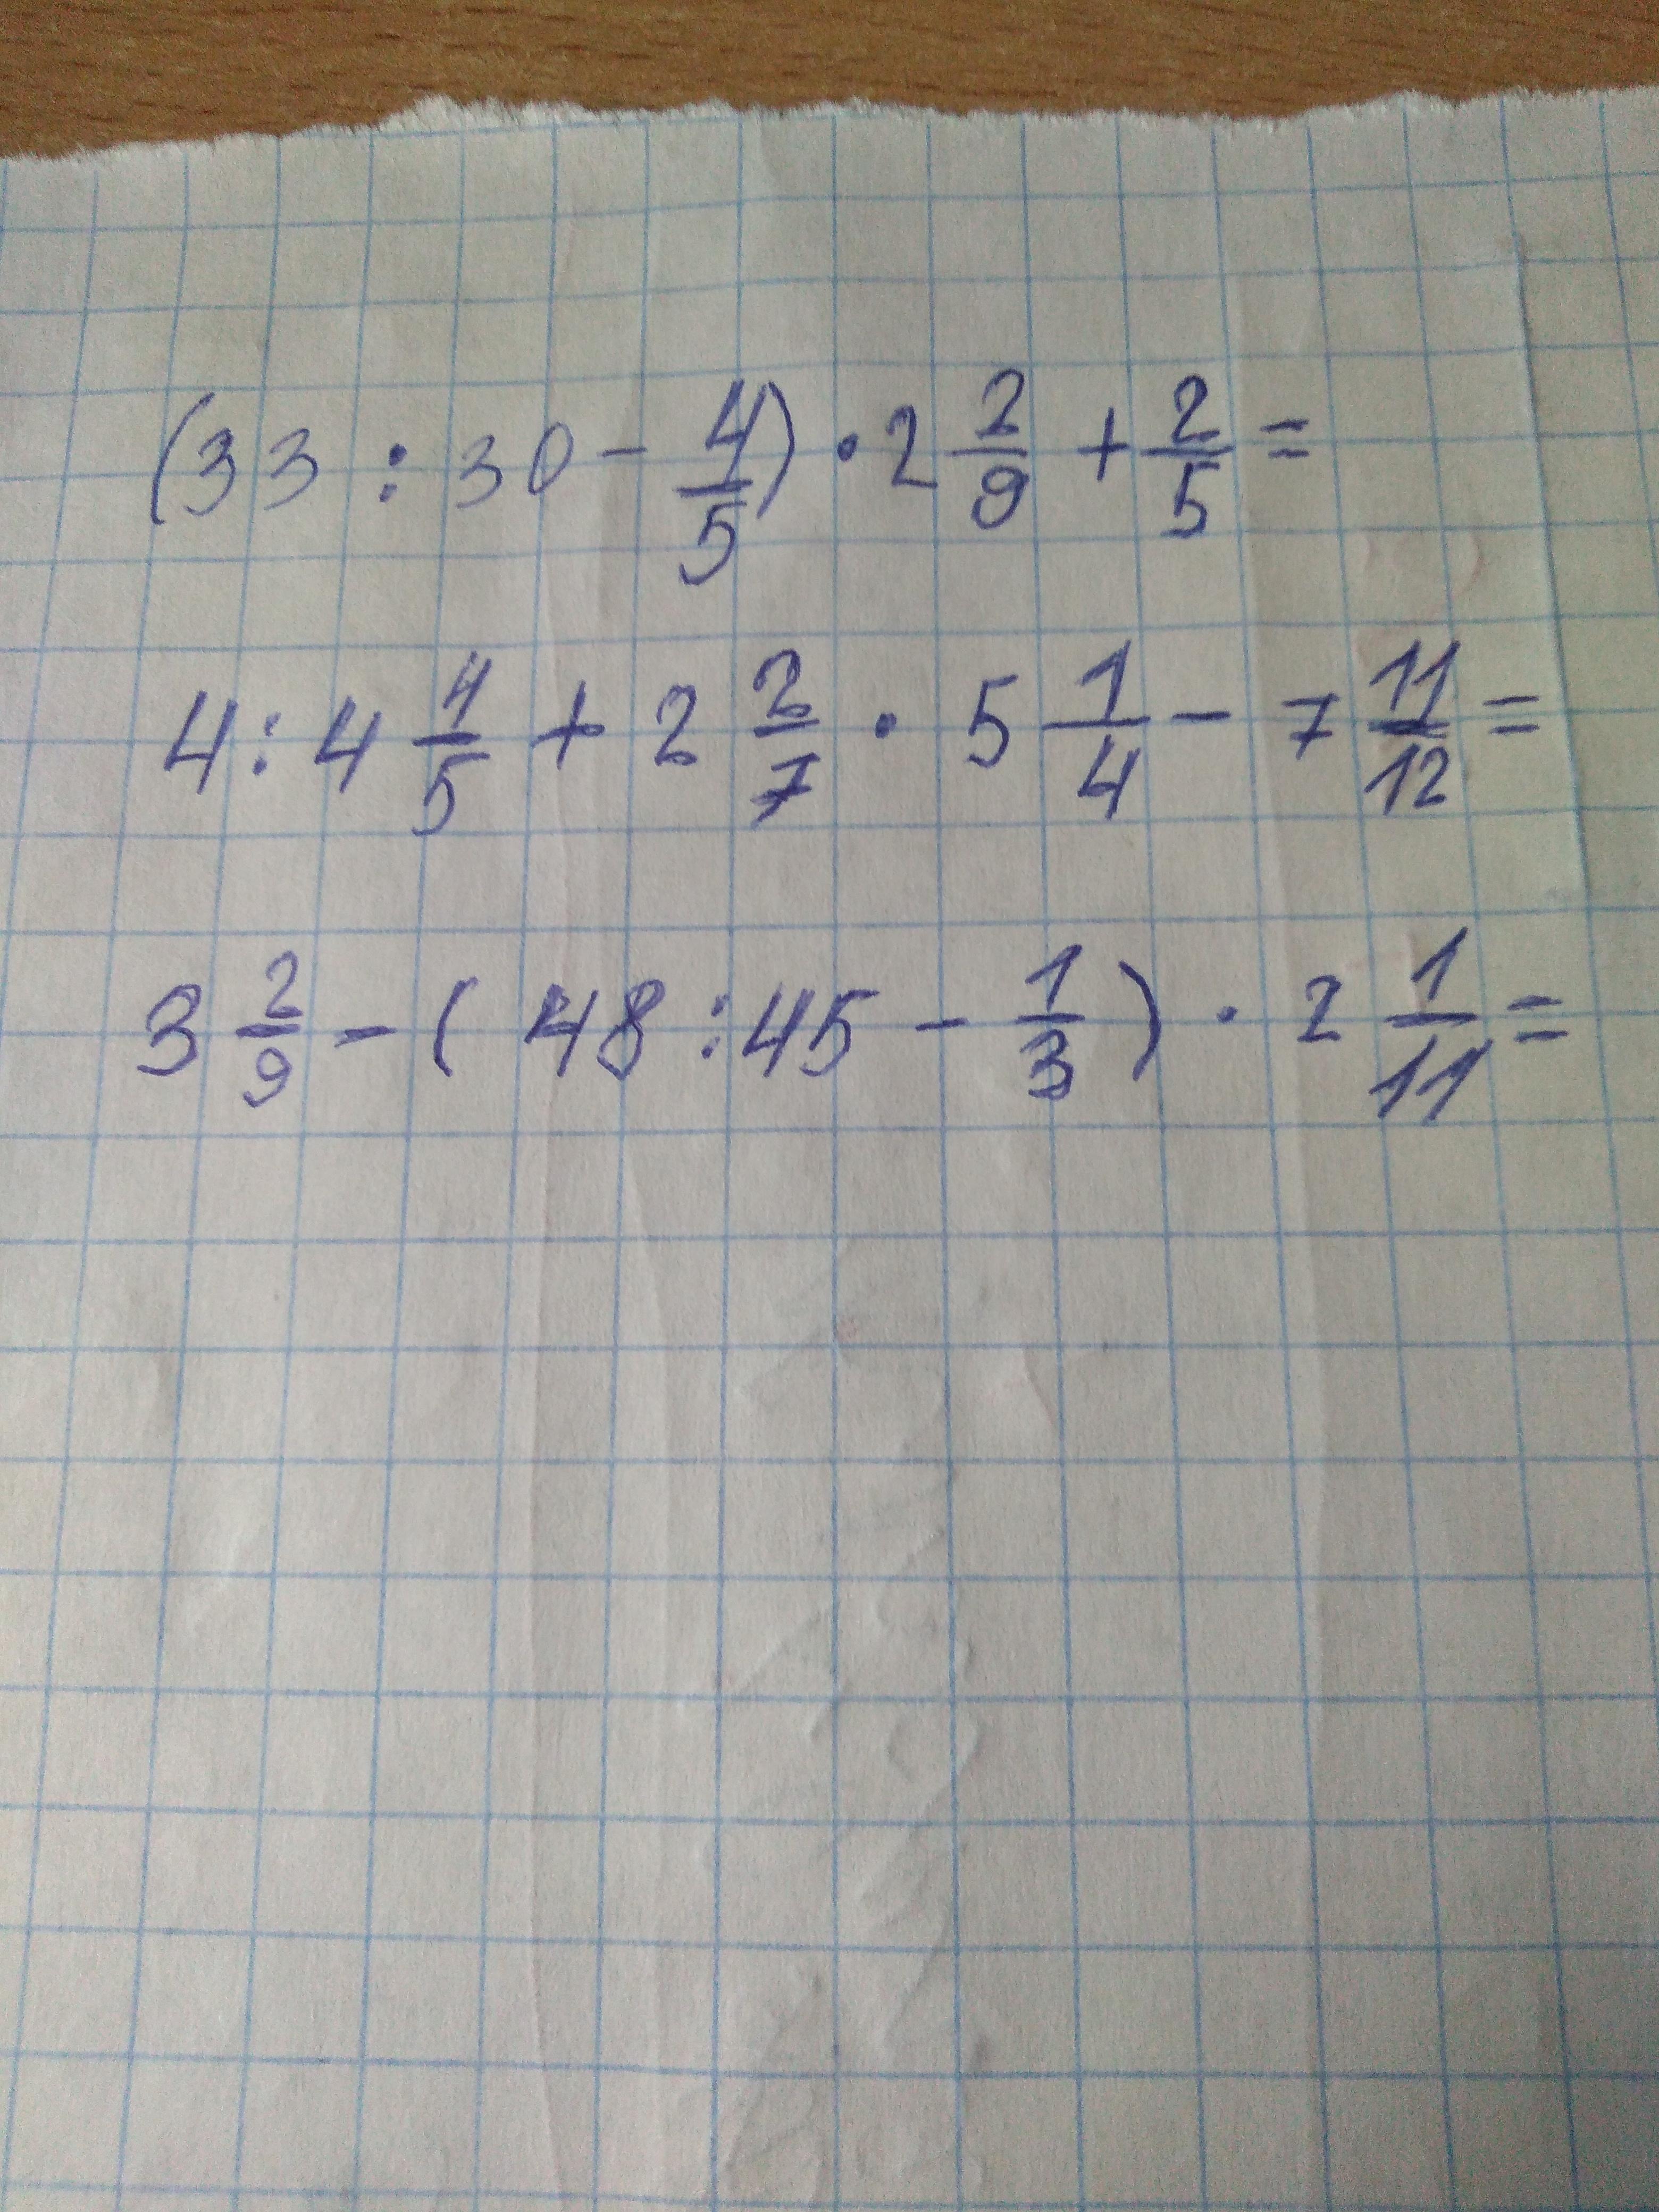 (33 : 30 - 4/5) · 2 2/9 + 2/5 =
4 : 4 4/5 + 2 2/7 · 5 1/4 - 7 11/12 =
3 2/9 - (48 : 45 - 1/3) · 2 1/11 =